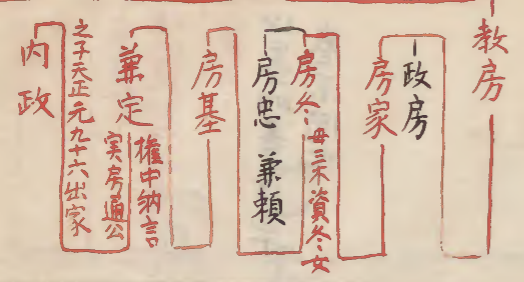 教房
政房
房家
房冬
母三木資冬女
房忠
兼頼
房基
兼定
権中納言
実房通公
之子天正元九十六出家
内政